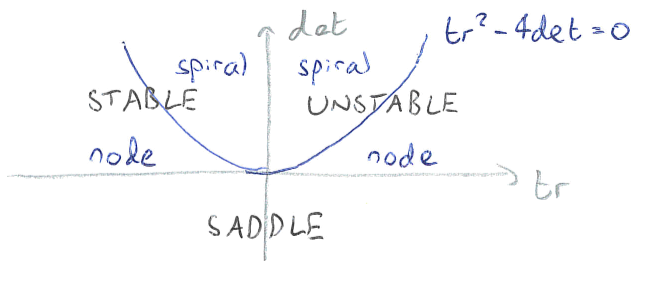 det
tr² - 4det = 0
spiral spiral
STABLE UNSTABLE
node node
tr
SADDLE